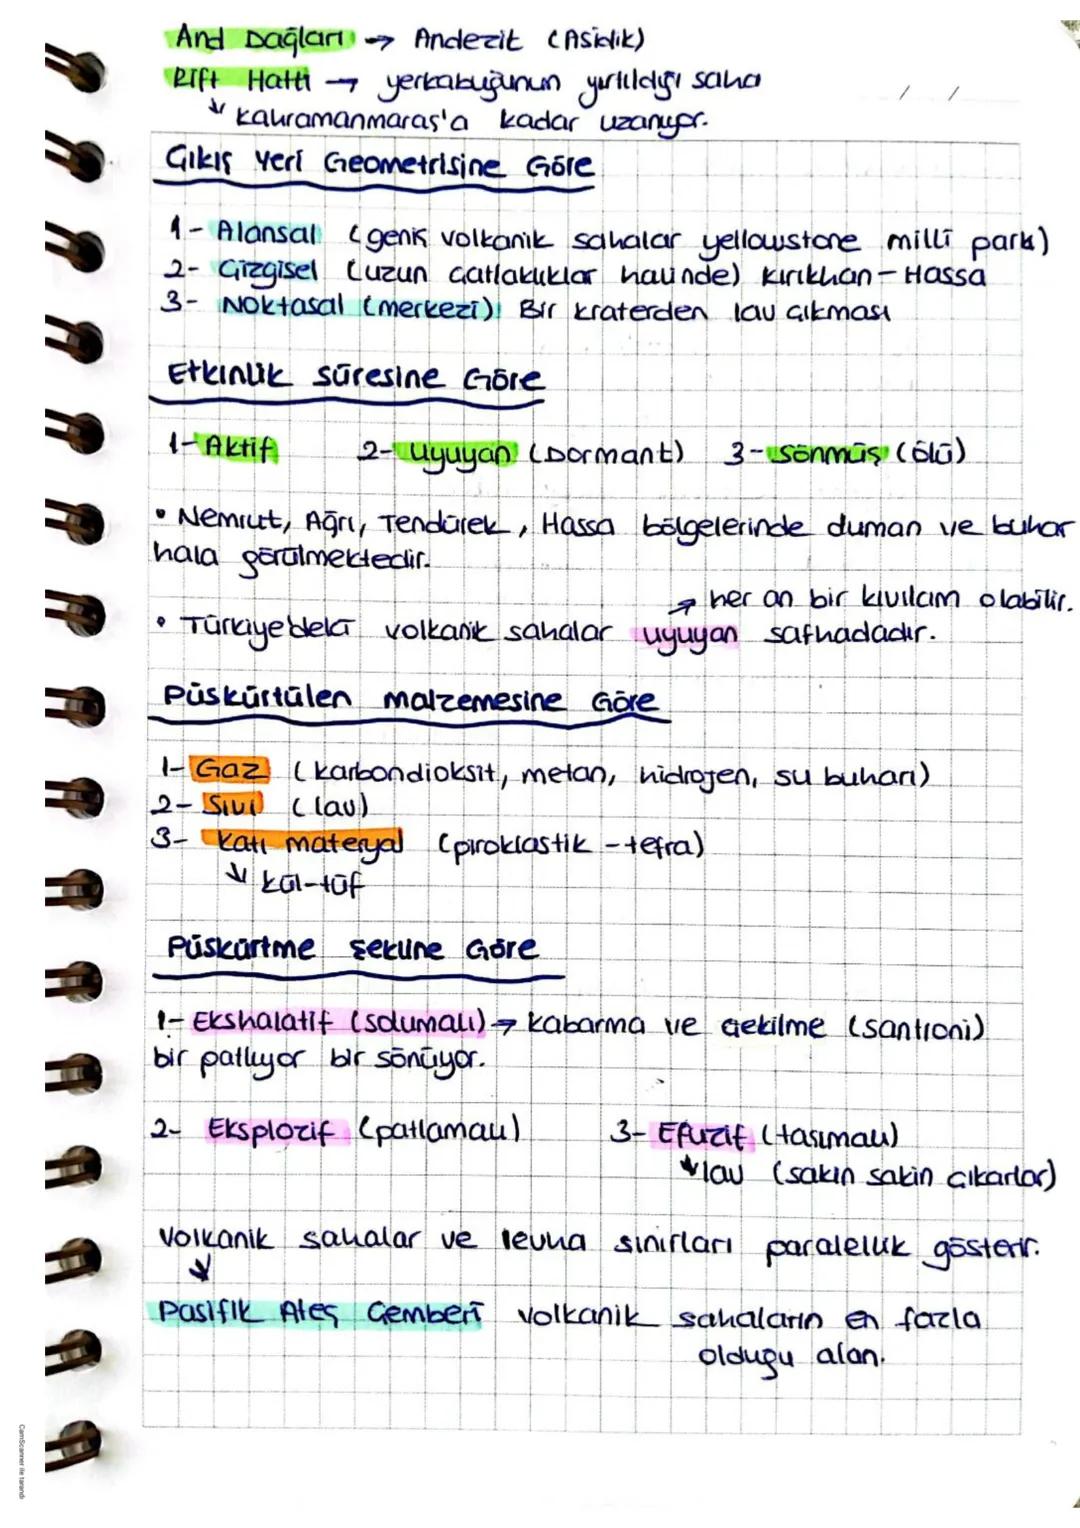 And Dağları → Andezit (Asidik)
Rift Hattı → yerkabuğunun yırtıldığı saha
↓ Kahramanmaraş'a kadar uzanıyor.
/ /
Çıkış Yeri Geometrisine Göre
1- Alansal (geniş volkanik sahalar yellowstone milli parkı)
2- Çizgisel (uzun çatlaklıklar halinde) Kırıkhan - Hassa
3- Noktasal (merkezi): Bir kraterden lav çıkması
Etkinlik süresine Göre
1- Aktif 2- uyuyan (Dormant) 3- sönmüş (ölü)
• Nemrut, Ağrı, Tendürek, Hassa bölgelerinde duman ve buhar
hala görülmektedir.
→ her an bir kıvılcım olabilir.
• Türkiye'deki volkanik sahalar uyuyan safhadadır.
Püskürtülen malzemesine Göre
1- Gaz (karbondioksit, metan, hidrojen, su buharı)
2- Sıvı (lav)
3- Katı materyal (piroklastik - tefra)
↓ kül-tüf
Püskürtme şekline Göre
1- Ekshalatif (solumalı) → kabarma ve çekilme (santroni)
bir patlıyor bir sönüyor.
2- Eksplozif (patlamalı) 3- Efuzif (taşımalı)
↓ lav (sakin sakin çıkarlar)
Volkanik sahalar ve levha sınırları paralellik gösterir.
↓
Pasifik Ateş Çemberi volkanik sahaların en fazla
olduğu alan.
CamScanner ile tarandı